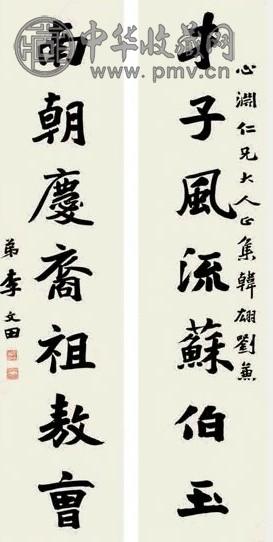 中华收藏网
www.pmv.cn
心淵仁兄大人正集韓翃劉兼
才子風流蘇伯玉
朝慶裔祖敖曺
弟李文田